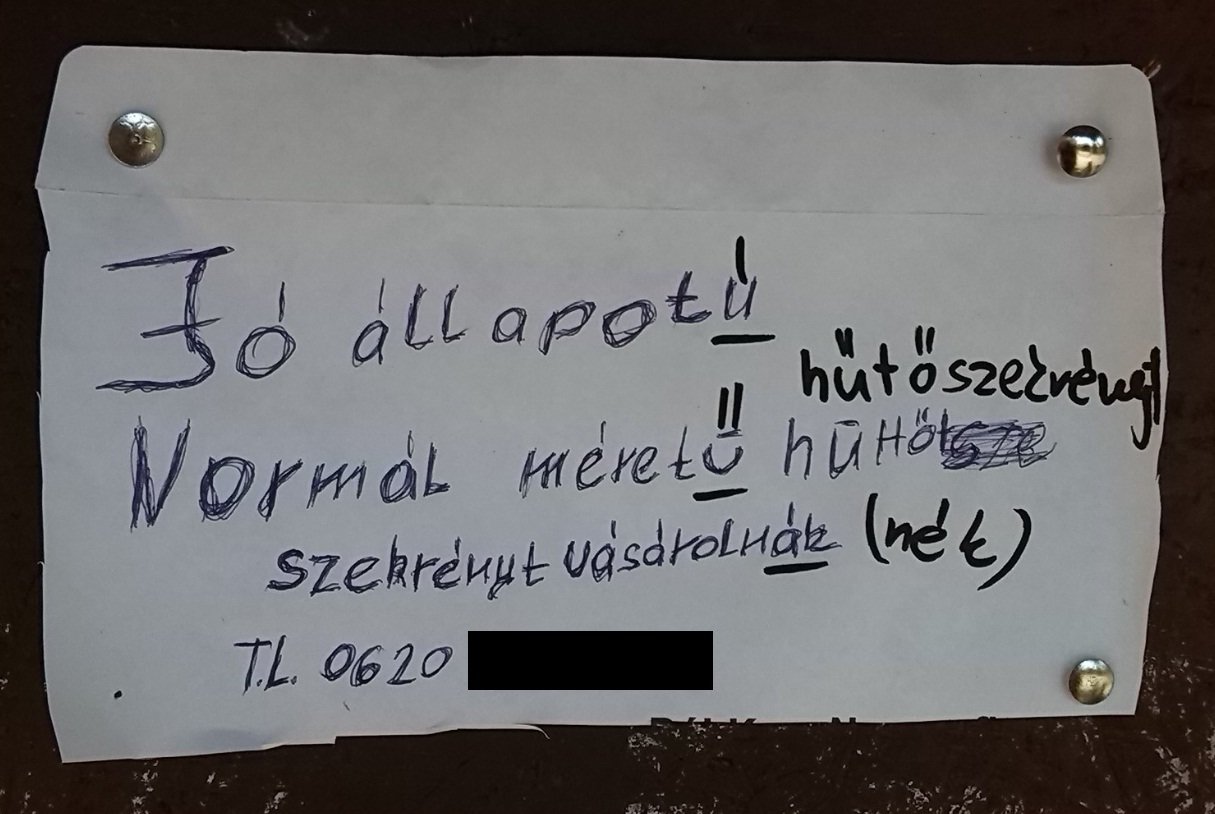 Jó állapotú
hűtőszekrényt
Normál méretű hűtőt
szekrényt vásárolnák (nék)
T.L. 0620